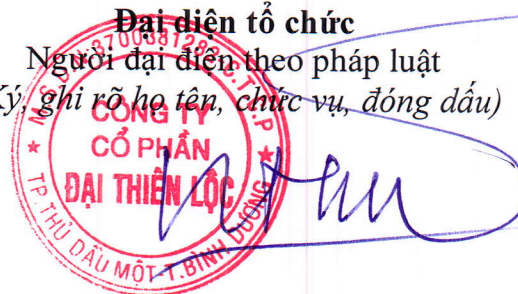 Đại diện tổ chức
Người đại diện theo pháp luật
Ký, ghi rõ họ tên, chức vụ, đóng dấu)
CÔNG TY
CỔ PHẦN
ĐẠI THIÊN LỘC
TP.THỦ DẦU MỘT-T.BÌNH DƯƠNG